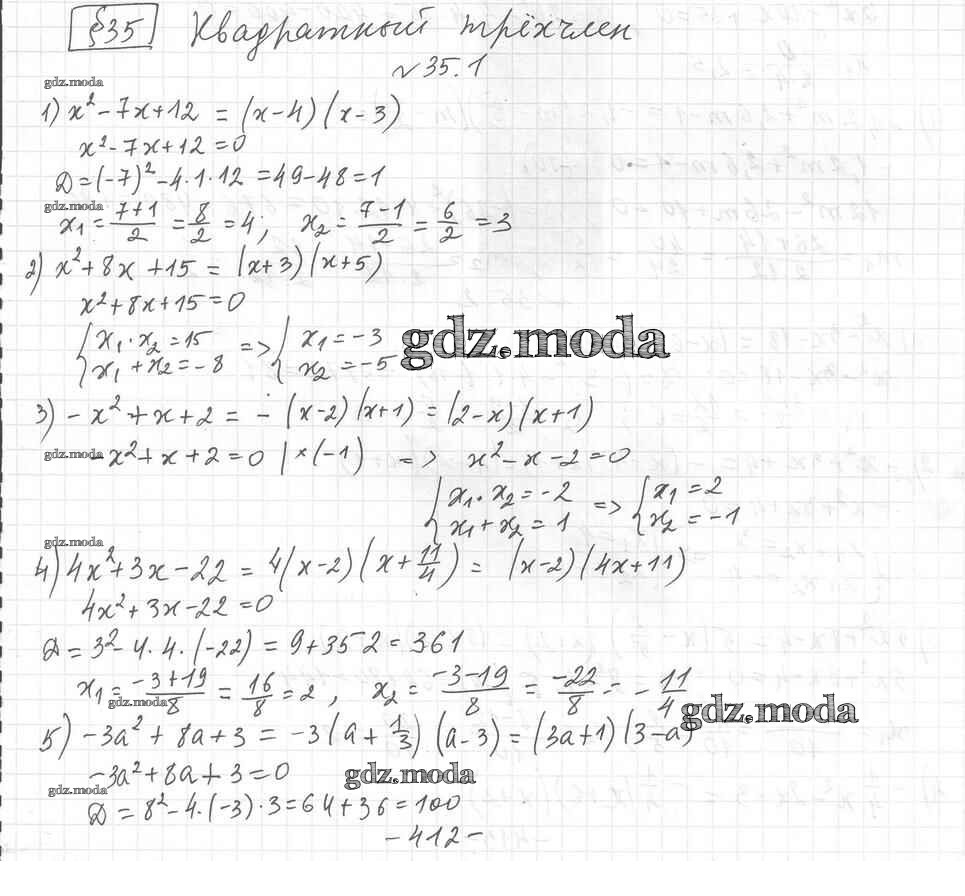 §35 Квадратный трёхчлен
№35.1
gdz.moda
1) x² - 7x + 12 = (x-4)(x-3)
x² - 7x + 12 = 0
Д = (-7)² - 4·1·12 = 49 - 48 = 1
gdz.moda
x₁ = (7+1)/2 = 8/2 = 4; x₂ = (7-1)/2 = 6/2 = 3
2) x² + 8x + 15 = (x+3)(x+5)
x² + 8x + 15 = 0
{x₁·x₂ = 15 => {x₁ = -3
{x₁ + x₂ = -8 {x₂ = -5
gdz.moda
3) -x² + x + 2 = -(x-2)(x+1) = (2-x)(x+1)
gdz.moda
-x² + x + 2 = 0 |×(-1) => x² - x - 2 = 0
{x₁·x₂ = -2 => {x₁ = 2
{x₁ + x₂ = 1 {x₂ = -1
gdz.moda
4) 4x² + 3x - 22 = 4(x-2)(x + 11/4) = (x-2)(4x+11)
4x² + 3x - 22 = 0
Д = 3² - 4·4·(-22) = 9 + 352 = 361
x₁ = (-3+19)/8 = 16/8 = 2, x₂ = (-3-19)/8 = -22/8 = -11/4
gdz.moda
gdz.moda
5) -3a² + 8a + 3 = -3(a + 1/3)(a-3) = (3a+1)(3-a)
-3a² + 8a + 3 = 0
gdz.moda
gdz.moda
Д = 8² - 4·(-3)·3 = 64 + 36 = 100
-412-